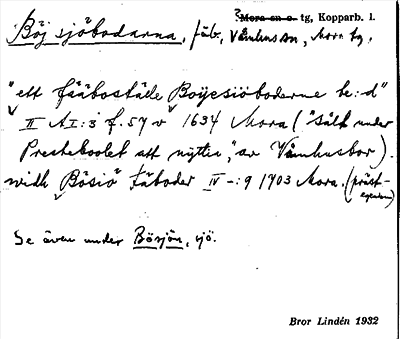 ? Mora sn o. tg, Kopparb. l.
Böj sjöbodarna, fäb., Våmhus sn, Mora tg.
"ett fääboställe Böyesiöboderne be:d"
II AI:3 f. 57 v 1634 Mora ("Sålt under
Presteboolet att nyttia," av Våmhusbor).
widh Bösiö fäboder IV -:9 1703 Mora. (präst-
egendom)
Se även under Bösjön, sjö.
Bror Lindén 1932